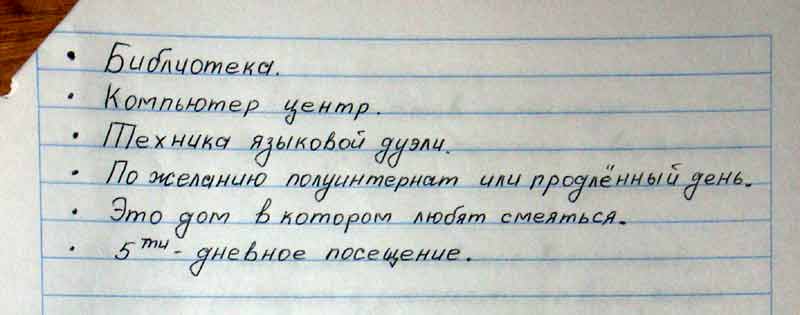 • Библиотека.
• Компьютер центр.
• Техника языковой дуэли.
• По желанию полуинтернат или продлённый день.
• Это дом в котором любят смеяться.
• 5ти - дневное посещение.